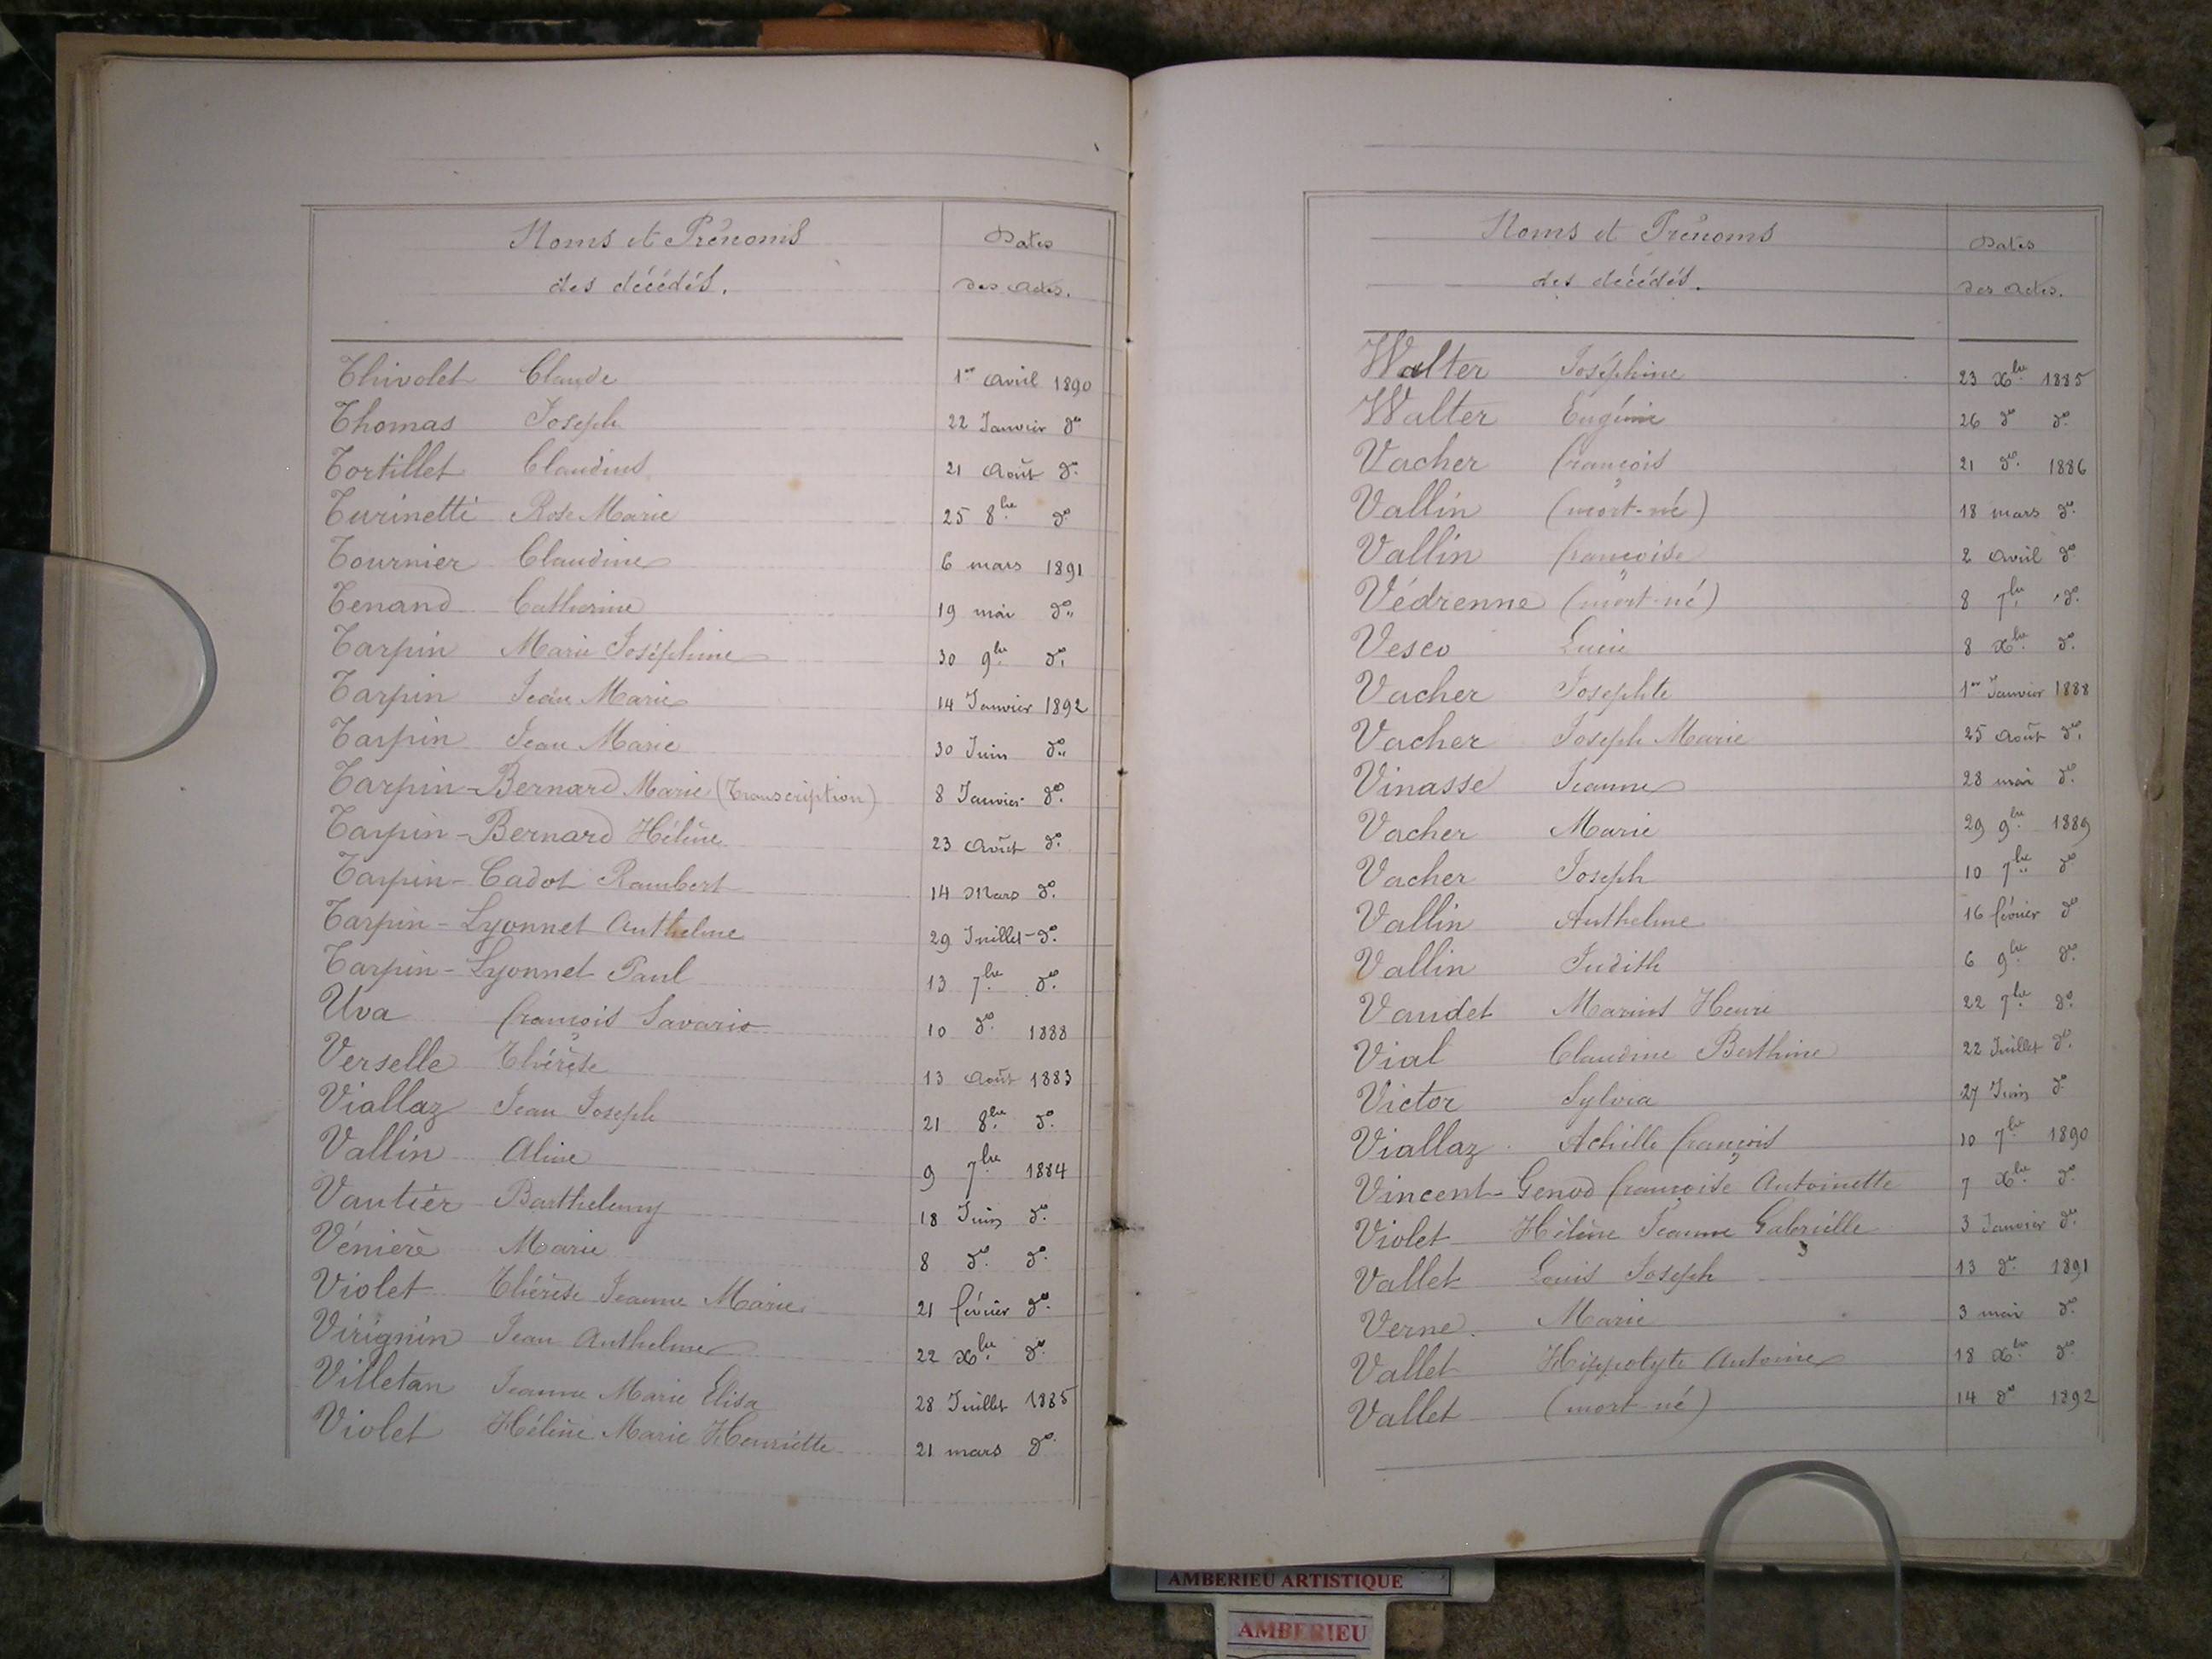 Noms et Prénoms
des décédés.
Dates
des actes.
Thivolet Claude 1er avril 1890
Thomas Joseph 22 Janvier do
Tortillet Claudius 21 Août do
Turinetti Rose Marie 25 8bre do
Tournier Claudine 6 mars 1891
Tenand Catherine 19 mai do
Tarpin Marie Joséphine 30 9bre do
Tarpin Jean Marie 14 Janvier 1892
Tarpin Jean Marie 30 Juin do
Tarpin-Bernard Marie (Transcription) 8 Janvier do
Tarpin-Bernard Hélène 23 Août do
Tarpin-Cadot Rambert 14 Mars do
Tarpin-Lyonnet Anthelme 29 Juillet do
Tarpin-Lyonnet Paul 13 7bre do
Uva François Savario 10 do 1888
Verselle Thérèse 13 Août 1883
Viallaz Jean Joseph 21 8bre do
Vallin Aline 9 7bre 1884
Vautier Barthelemy 18 Juin do
Vénière Marie 8 do do
Violet Thérèse Jeanne Marie 21 février do
Virignin Jean Anthelme 22 Xbre do
Villetan Jeanne Marie Elisa 28 Juillet 1885
Violet Hélène Marie Henriette 21 mars do
Noms et Prénoms
des décédés.
Dates
des actes.
Walter Joséphine 23 Xbre 1885
Walter Eugénie 26 do do
Vacher François 21 do 1886
Vallin (mort-né) 18 mars do
Vallin Françoise 2 avril do
Védrenne (mort-né) 8 7bre do
Vesco Lucie 8 Xbre do
Vacher Josephte 1er Janvier 1888
Vacher Joseph Marie 25 Août do
Vinasse Jeanne 28 mai do
Vacher Marie 29 9bre 1889
Vacher Joseph 10 7bre do
Vallin Anthelme 16 février do
Vallin Judith 6 9bre do
Vaudet Marius Henri 22 7bre do
Vial Claudine Berthine 22 Juillet do
Victor Sylvia 27 Juin do
Viallaz Achille François 10 7bre 1890
Vincent-Genod Françoise Antoinette 7 Xbre do
Violet Hélène Jeanne Gabrielle 3 Janvier do
Vallet Louis Joseph 13 do 1891
Verne Marie 3 mai do
Vallet Hippolyte Antoine 18 Xbre do
Vallet (mort-né) 14 do 1892
AMBERIEU ARTISTIQUE
AMBERIEU